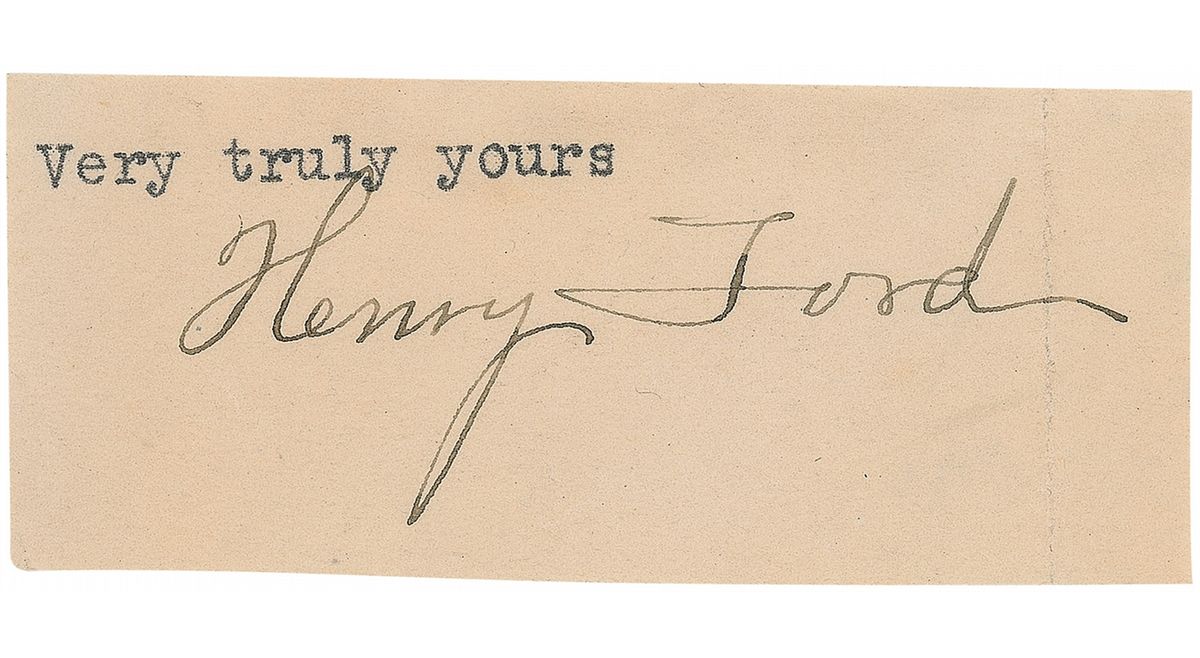 Very truly yours
Henry Ford